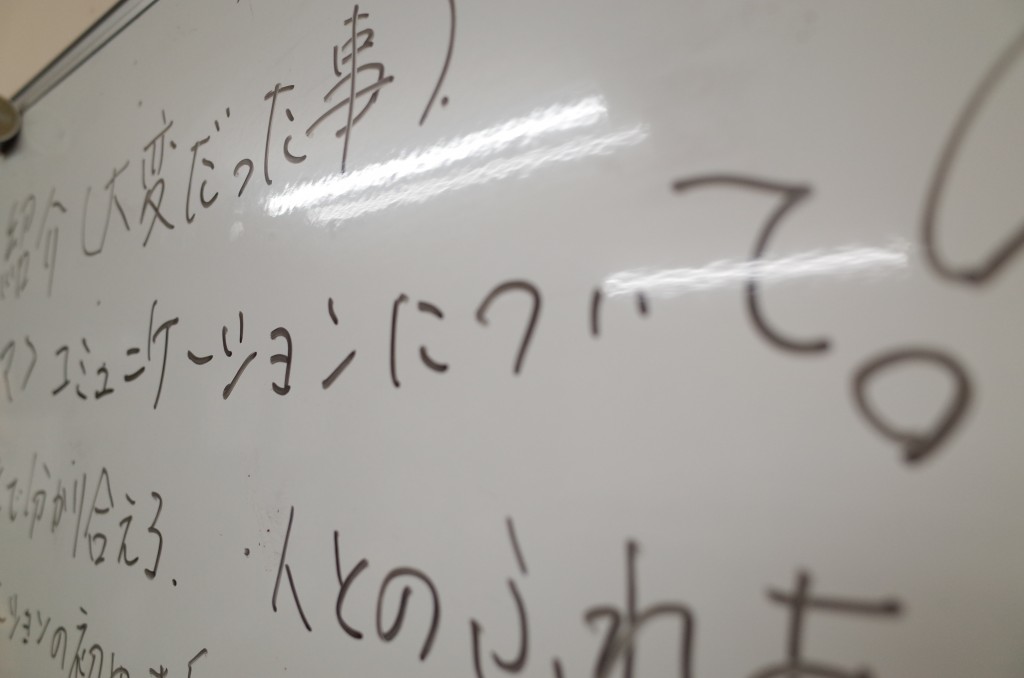 紹介(大変だった事).
コミュニケーションについて。
で分かり合える.
・人とのふれあ
ションの初